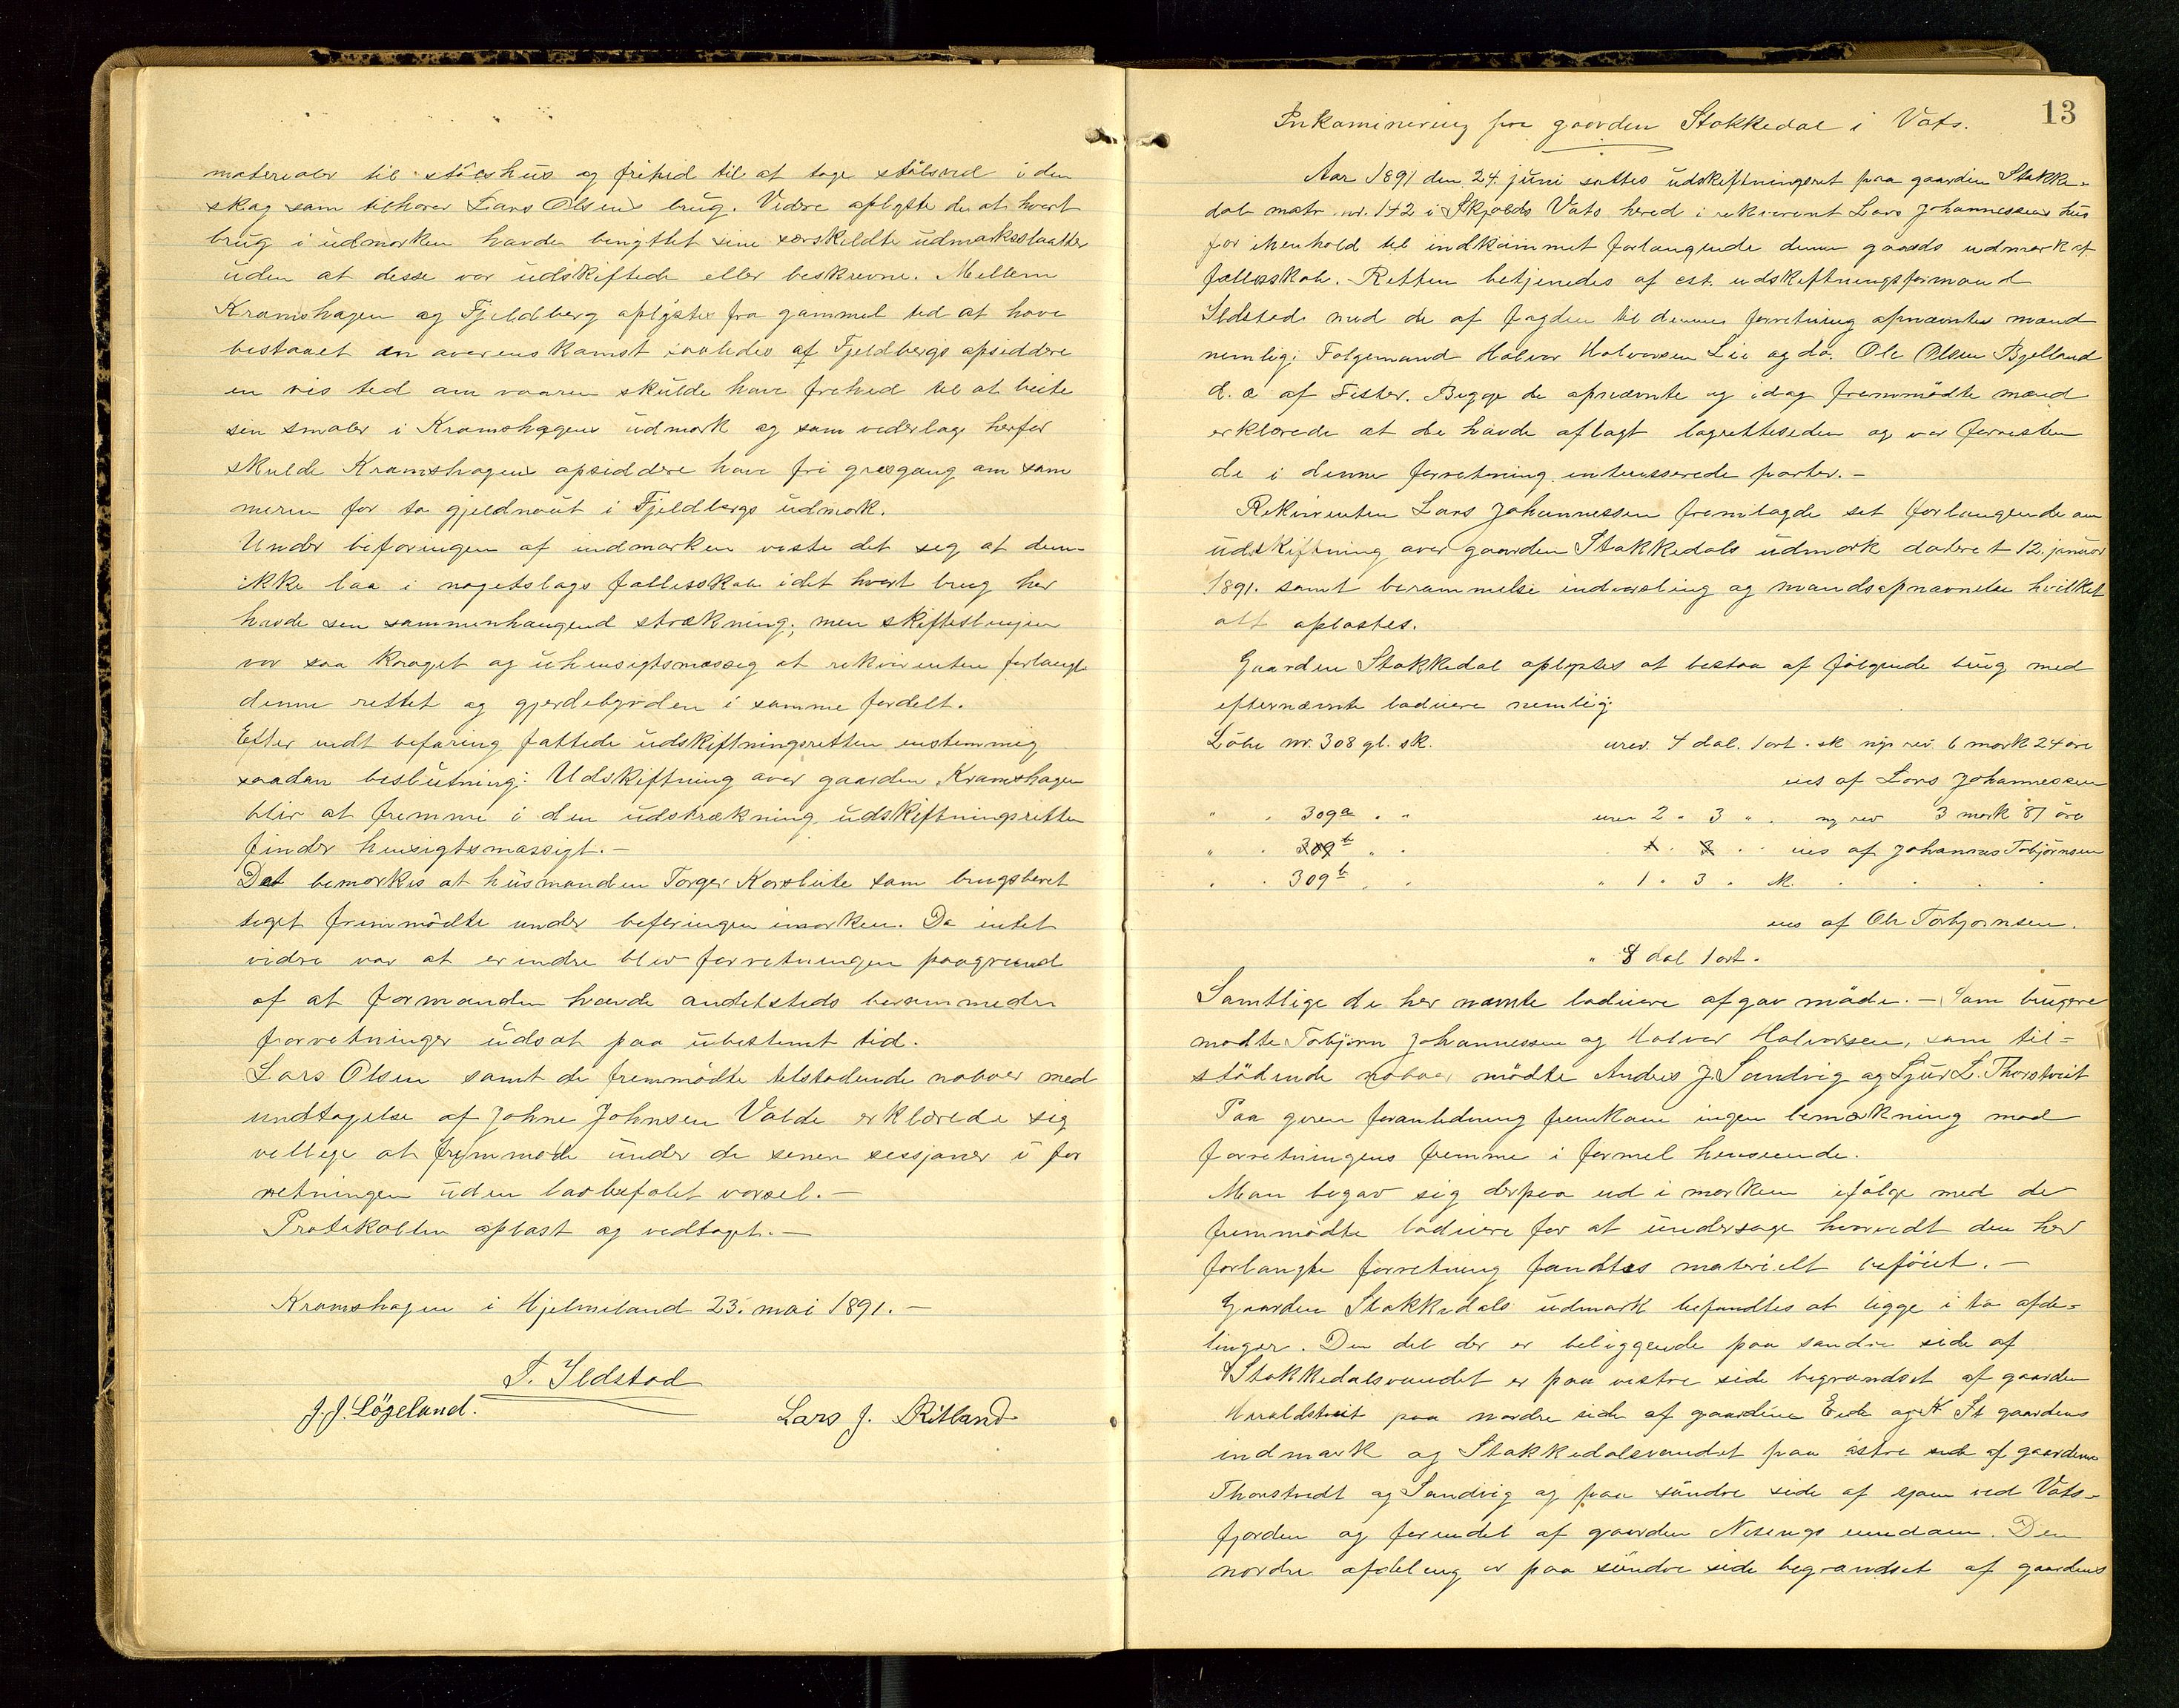 materialer til stölshus og frihed til at tage stölsved i den
skog som tilhører Lars Olsens brug. Videre oplyste de at hvert
brug i udmarken havde benyttet sine særskildte udmarksslaatter
uden at disse var udskiftede eller beskrevne. Mellem
Kramshagen og Fjeldberg oplystes fra gammel tid at have
bestaaet en overenskomst saaledes af Fjeldbergs opsiddere
en vis tid om vaaren skulde have frihed til at beite
sin smaler i Kramshagens udmark og som vederlag herfor
skulde Kramshagens opsiddere have fri græsgang om som
meren for to gjeldnöut i Fjeldbergs udmark.
Under beforingen af indmarken viste det seg at denne
ikke laa i nogetslags fællesskab idet hvert brug her
havde sin sammenhængend strækning; men skifteslinjen
var saa kroget og uhensigtsmæssig at rekvirenten forlangte
denne rettet og gjerdebyrden i samme fordelt.
Efter endt befaring fattede udskiftningsretten enstemmig
saadan beslutning: Udskiftning over gaarden Kramshagen
blir at fremme i den udstrækning udskiftningsretten
finder hensigtsmæssigt.-
Det bemærkes at husmanden Torger Korsleite som brugsberet
tiget fremmödte under beferingen i marken. Da intet
vidre var at erindre blev forretningen paagrund
af at formanden havde andetsteds berammede
forretninger udsat paa ubestemt tid.
Lars Olsen samt de fremmödte tilstødende naboer med
undtagelse af Johne Johnsen Valde erklærede sig
vellige at fremmøde under de senere sessjoner i for
retningen uden lovbefalet varsel.-
Protokollen oplæst og vedtaget.-
Kramshagen i Hjelmeland 23. mai 1891.-
T. Ildstad
J. J. Lögeland. Lars J. Ritland
13
Inkaminering paa gaarden Stakkedal i Vats.
Aar 1891 den 24. juni sattes udskiftningsret paa gaarden Stakke=
dal matr. nr. 142 i Skjolds Vats hered i rekvirent Lars Johannessens hus
for ihenhold til indkommet forlangende denne gaards udmark af
fællesskab. Retten betjenedes af est. udskiftningsformand
Ildstad med de af fogden til denne forretning opnævnte mænd
nemlig: Følgemand Halvor Halvorsen Lie og do. Ole Olsen Bjelland
d. æ af Fister. Begge de opnævnte og idag fremmödte mænd
erklærede at de havde aflagt lagretteseden og var forresten
de i denne forretning uinteresserede parter.-
Rekvirenten Lars Johannessen fremlagde set forlangende om
udskiftning over gaarden Stakkedals udmark dateret 12. januar
1891. samt berammelse indvarsling og mandsopnævnelse hvilket
alt oplæstes.
Gaarden Stakkedal oplystes at bestaa af følgende brug med
efternævnte lodeiere nemlig:
Löbe nr. 308 gl. sk. urev. 4 dal. 1 ort. sk ny rev. 6 mark 24 öre
eies af Lars Johannessen
" . 309a . " urev 2 " 3 " . ny rev 3 mark 87 öre
" . 309b " . 1 . 3 . . eies af Johannes Tobjørnsen
. . 309b . . " 1 " 3 " sk. . . . .
eies af Ole Torbjørnsen.
" 8 dal 1 ort.
Samtlige de her nævnte lodeiere afgav möde.- Som brugere
mødte Tobjørn Johannessen og Halvor Halvorsen, som til=
stödende naboer mödte Andres J. Sandvig og Sjur L. Thorstveit
Paa given foranledning fremkom ingen bemærkning mod
forretningens fremme i formel henseende.
Man begav sig derpaa ud i marken ifølge med de
fremmødte lodeiere for at undersøge hvorvidt den her
forlangte forretning fandtes materielt beföiet.-
Gaarden Stakkedals udmark befandtes at ligge i to afde=
linger. Den del der er beliggende paa søndre side af
Stakkedalsvandet er paa vestre side begrændset af gaarden
Haraldstveit paa nordre side af gaardene Eide og St gaardens
indmark og Stakkedalsvandet paa østre side af gaardene
Thorstvedt og Sandvig og paa söndre side af sjøen ved Vats=
fjorden og forendel af gaarden Nesengs eiendom. Den
nordre afdeling er paa søndre side begrændset af gaardens